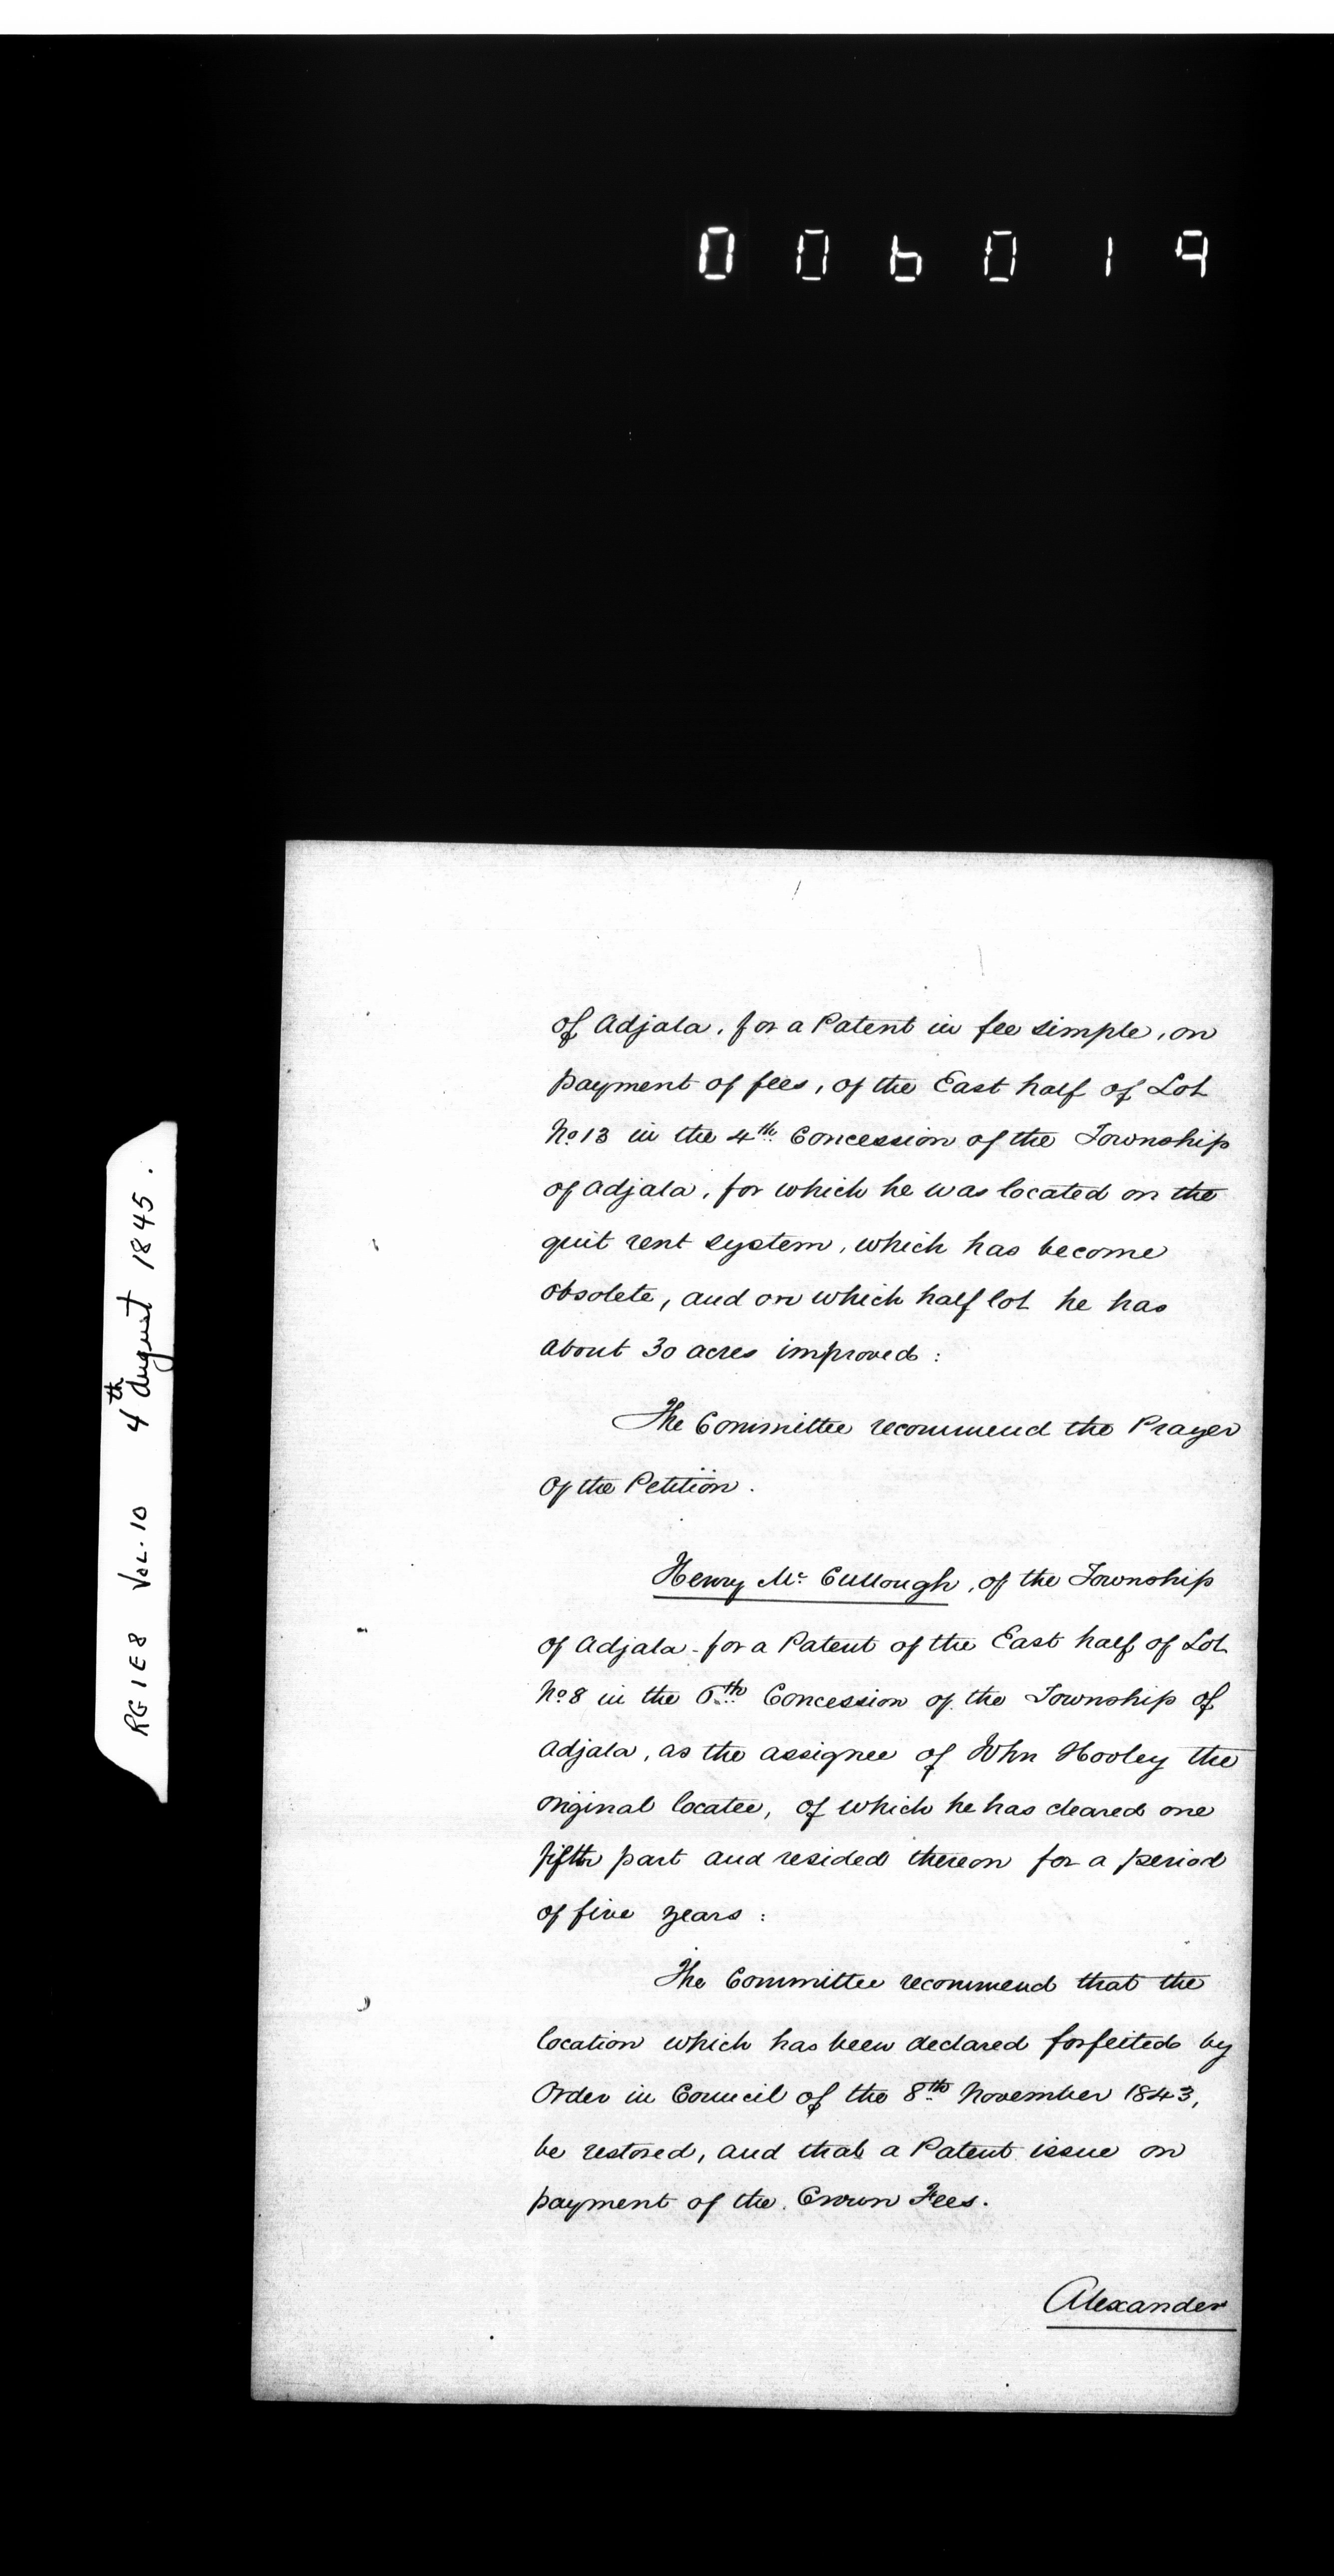 006019
RG 1 E 8 VOL. 10 4th August 1845.
of Adjala, for a Patent in fee simple, on
payment of fees, of the East half of Lot
No 13 in the 4th Concession of the Township
of Adjala, for which he was located on the
quit rent system, which has become
obsolete, and on which half lot he has
about 30 acres improved:
The Committee recommend the Prayer
of the Petition.
Henry Mc Cullough, of the Township
of Adjala - for a Patent of the East half of Lot
No 8 in the 6th Concession of the Township of
Adjala, as the assignee of John Hooley the
original locatee, of which he has cleared one
fifth part and resided thereon for a period
of five years:
The Committee recommend that the
location which has been declared forfeited by
Order in Council of the 8th November 1843,
be restored, and that a Patent issue on
payment of the Crown Fees.
Alexander